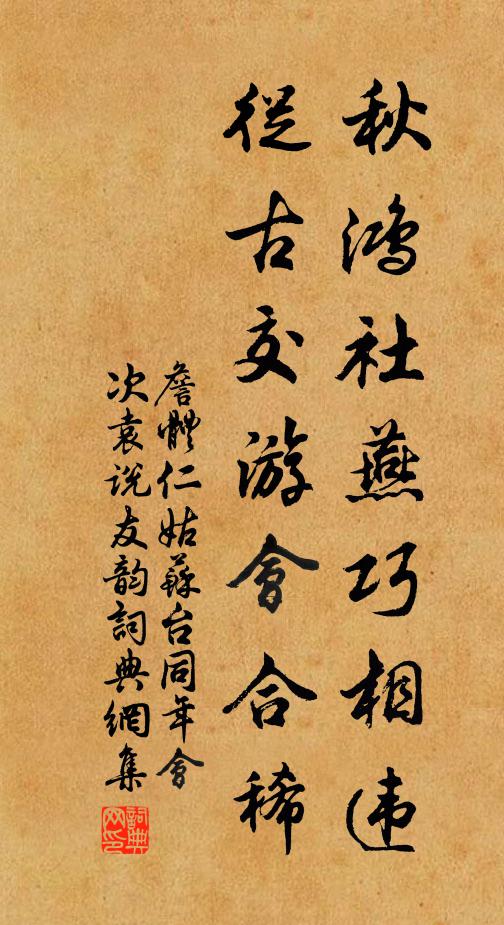 秋鴻社燕巧相违
從古交游會合稀
詹體仁姑蘇台同年會
次袁说友韵詞典網集
詞典
网印